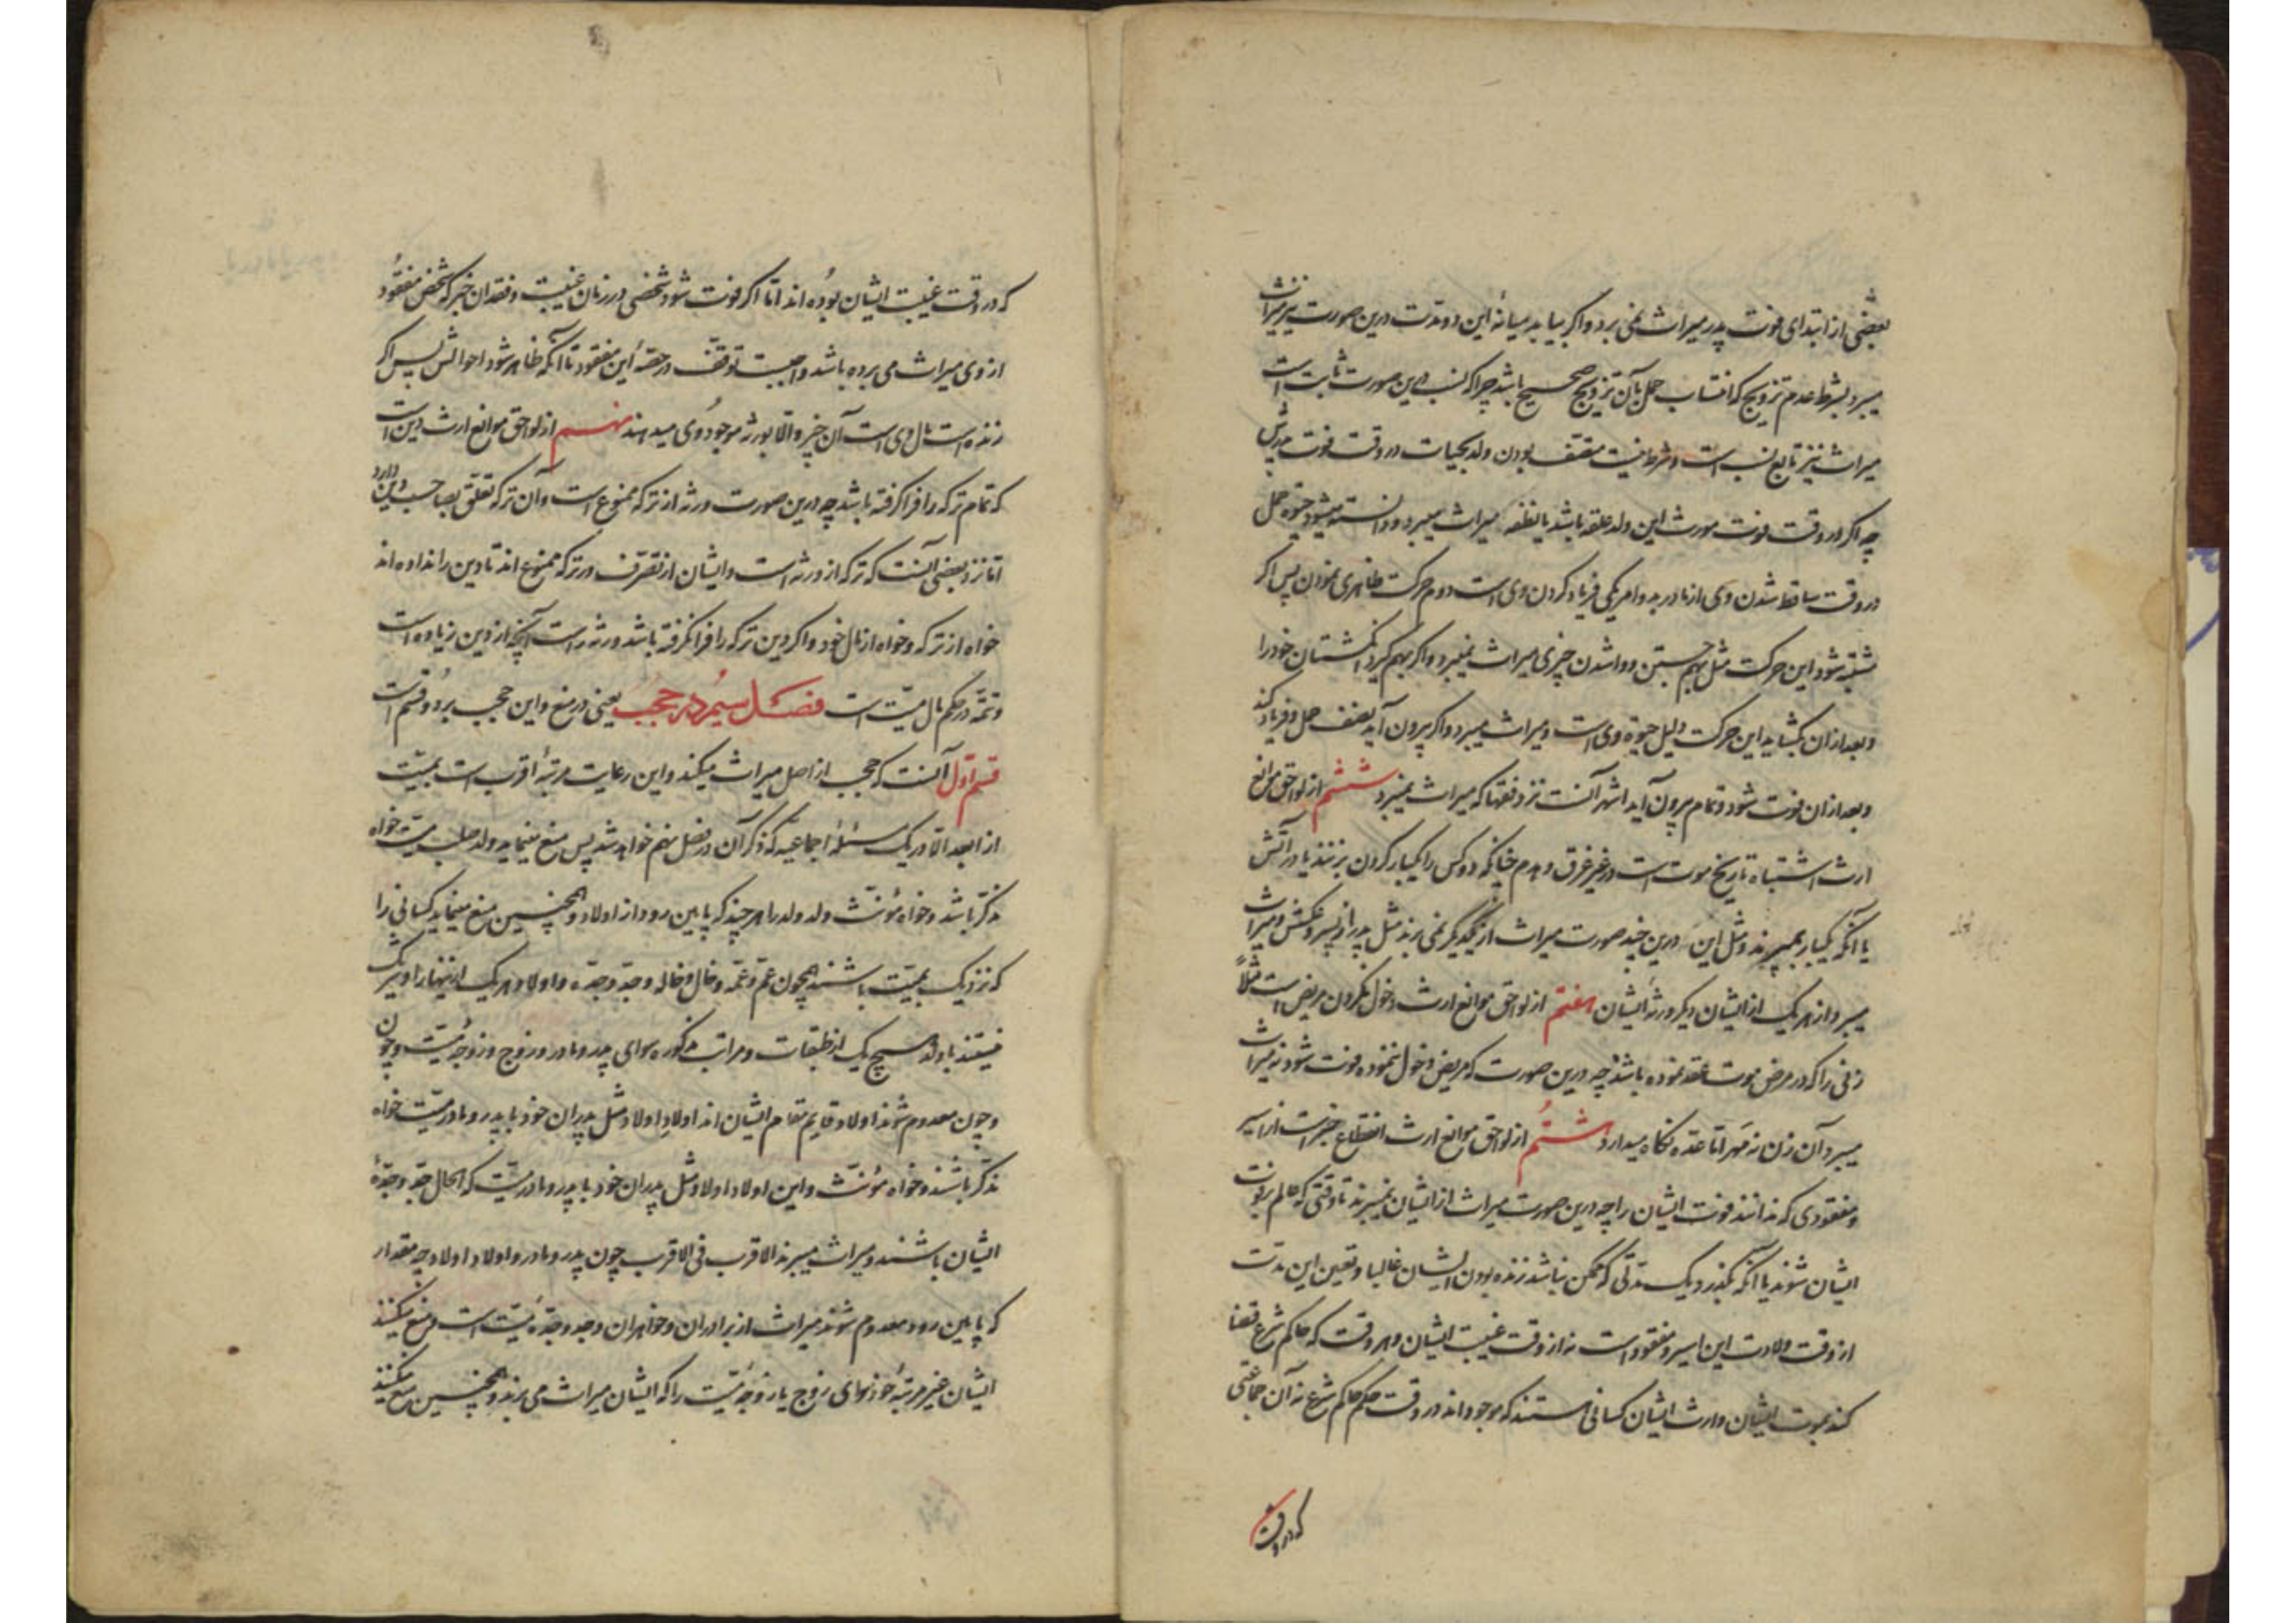 بعضی از ابتدای فوت پدر میراث نمی برد و اکر بیاید میانهٔ این دو مدت درین صورت نیز میراث
میبرد بشرط عدم تزویج که انتساب حمل بآن تزویج صحیح باشد چراکه نسب درین صورت ثابت است
میراث نیز تابع نسب است و شرط نیست متصف بودن ولد بحیات در وقت فوت مورثش
چه اکر در وقت فوت مورث این ولد علقه باشد یا نطفه میراث میبرد و دانسته میشود حیوة حمل
در وقت ساقط شدن وی از مادر بدو امر یکی فریاد کردن وی است دوم حرکت ظاهری نمودن پس اکر
مشتبه شود این حرکت مثل بهم جستن و وا شدن چیزی میراث نمیبرد و اکر بهم کیرد انکشتان خود را
و بعد از ان بکشاید این حرکت دلیل حیوة وی است و میراث میبرد و اکر بیرون آید نصف حمل و فریاد کند
و بعد از ان فوت شود و تمام بیرون آید اشهر آنست نزد فقها که میراث نمیبرد ششم از لواحق موانع
ارث اشتباه تاریخ موت است در غیر غرق و هدم چنانکه دو کس را یکبار کردن بزنند یا در آتش
یا آنکه یکبار بمیرند و مثل این درین چند صورت میراث از یکدیکر نمی برند مثل پدر از پسر و عکسش و میراث
میبرد از هر یک از ایشان دیکر ورثهٔ ایشان هفتم از لواحق موانع ارث دخول نکردن مریض است مثلاً
زنی را که در مرض موت عقد نموده باشد چه درین صورت که مریض دخول ننموده فوت شود نه میراث
میبرد آن زن نه مهر اما عده نکاه میدارد هشتم از لواحق موانع ارث انقطاع خبرست از اسیر
و مفقودی که ندانند فوت ایشان را چه درین صورت میراث از ایشان نمیبرند تا وقتی که عالم بفوت
ایشان شوند یا آنکه بکذرد یک مدتی که ممکن نباشد زنده بودن ایشان غالبا و تعین این مدت
از وقت ولادت این اسیر و مفقود است نه از وقت غیبت ایشان و هر وقت که حاکم شرع قضا
کند بموت ایشان وارث ایشان کسانی هستند که موجود اند در وقت حکم حاکم شرع نه آن جماعتی
که در وقت
که در وقت غیبت ایشان بوده اند اما اکر فوت شود شخصی در زمان غیبت و فقدان خبر که شخص مفقود
از وی میراث می برده باشد واجبست توقف در حصهٔ این مفقود تا آنکه ظاهر شود احوالش پس اکر
زنده است مال وی است آن چیز و الا بورثه موجود وی میدهند نهم از لواحق موانع ارث دین است
که تمام ترکه را فرا کرفته باشد چه درین صورت ورثه از ترکه ممنوع است و آن ترکه تعلق بصاحب دین دارد
اما نزد بعضی آنست که ترکه از ورثه است و ایشان از تصرف در ترکه ممنوع اند تا دین را نداده اند
خواه از ترکه و خواه از مال خود و اکر دین ترکه را فرا نکرفته باشد ورثه راست آنچه از دین زیاده است
و تتمه در حکم مال میت است فصل سیم در حجب یعنی در منع و این حجب بر دو قسم است
قسم اول آنست که حجب از اصل میراث میکند و این رعایت مرتبهٔ اقرب است بمیت
از ابعد الا در یک مسئلهٔ اجماعیه که ذکر آن در فصل نهم خواهد شد پس منع مینماید ولد صلب میت خواه
مذکر باشد و خواه مؤنث ولد ولد را هر چند که پایین رود از اولاد و همچنین منع مینماید کسانی را
که نزدیک بمیت باشند همچون عم و عمه و خال و خاله و جد و جده و اولاد هر یک ازینها را و شریک
نیستند با ولد هیچ یک از طبقات و مراتب مذکوره سوای پدر و مادر و زوج و زوجهٔ میت و چون
و چون معدوم شوند اولاد قایم مقام ایشان اند اولاد اولاد مثل پدران خود با پدر و مادر میت خواه
مذکر باشند و خواه مؤنث و این اولاد اولاد مثل پدران خود با پدر و مادر میت که الحال جد و جدهٔ
ایشان باشند و میراث میبرند الاقرب فی الاقرب چون پدر و مادر و اولاد اولاد چه مقدار
که پایین رود معدوم شوند میراث از برادران و خواهران و جد و جدهٔ میت است و منع میکنند
ایشان غیر مرتبهٔ خود سوای زوج یا زوجهٔ میت را که ایشان میراث می برند و همچنین منع میکنند